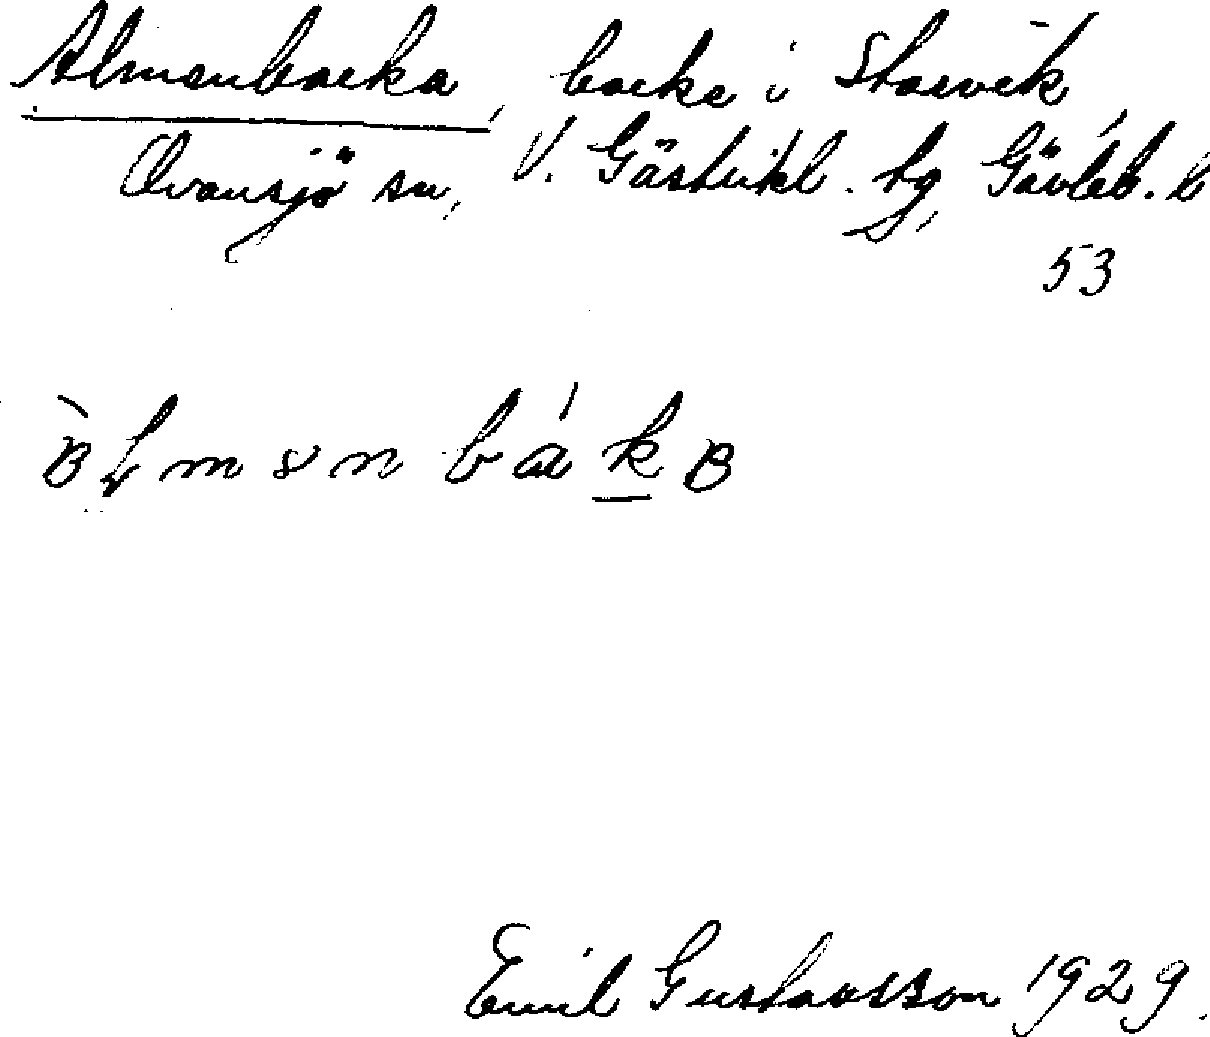 Almanbacka, backe i Storvik,
Ovansjö sn, V. Gästrikl. tg, Gävleb. l
53
Emil Gustavsson 1929.